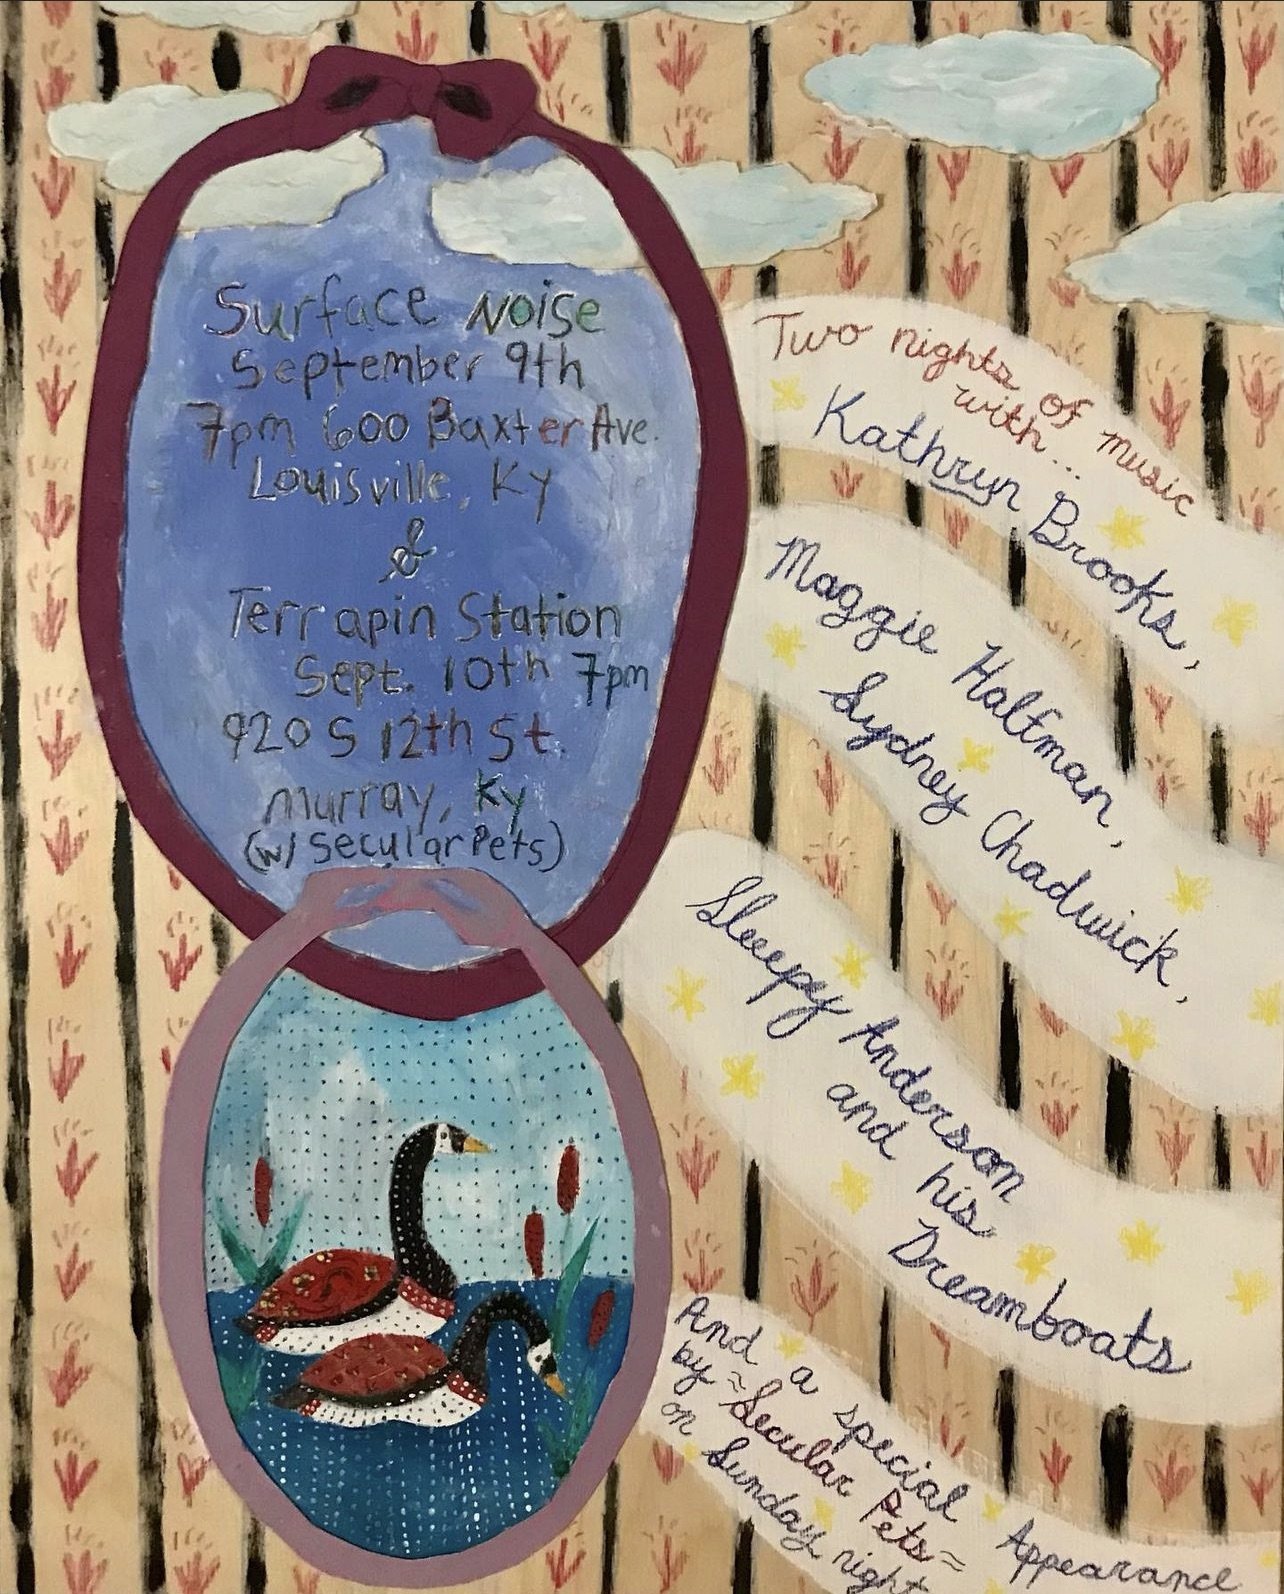 Surface Noise
September 9th
7pm 600 Baxter Ave.
Louisville, Ky
&
Terrapin Station
Sept. 10th 7pm
920 S 12th St.
Murray, Ky
(w/ Secular Pets)
Two nights of music
with...
Kathryn Brooks,
Maggie Halfman,
Sydney Chadwick,
Sleepy Anderson
and his
Dreamboats
And a special Appearance
by ~Secular Pets~
on Sunday night